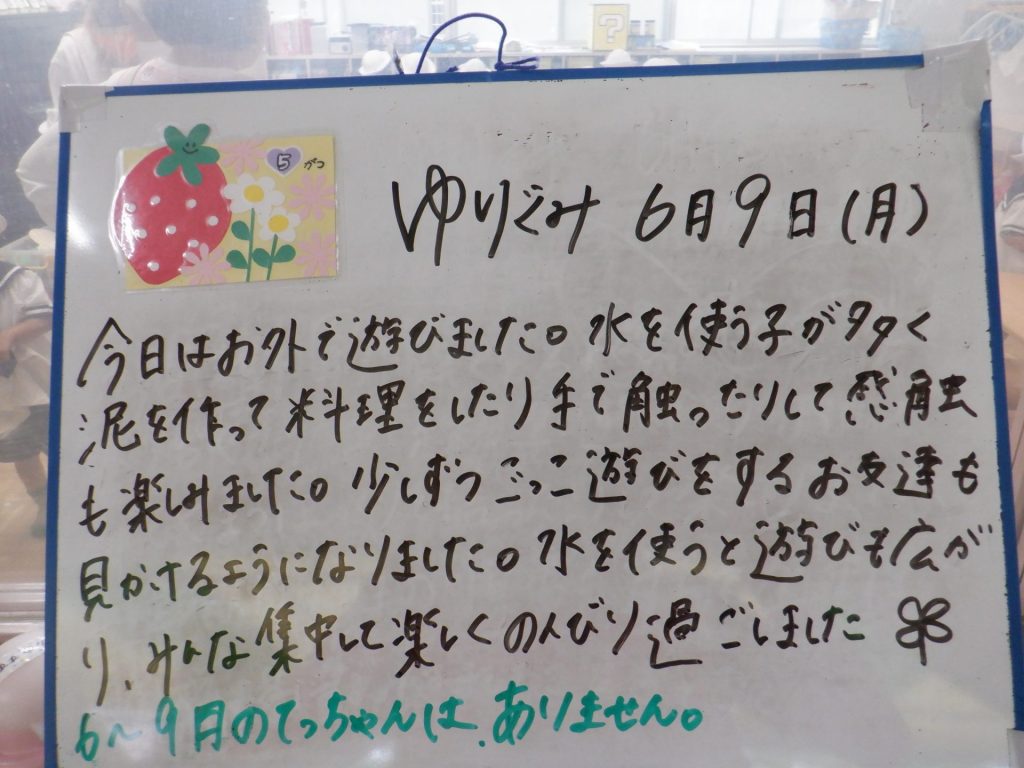 ?
5 がつ
ゆりぐみ 6月9日(月)
今日はお外で遊びました。水を使う子が多く
泥を作って料理をしたり手で触ったりして感触
も楽しみました。少しずつごっこ遊びをするお友達も
見かけるようになりました。水を使うと遊びも広が
り、みんな集中して楽しくのんびり過ごしました
6~9日のてっちゃんは、ありません。